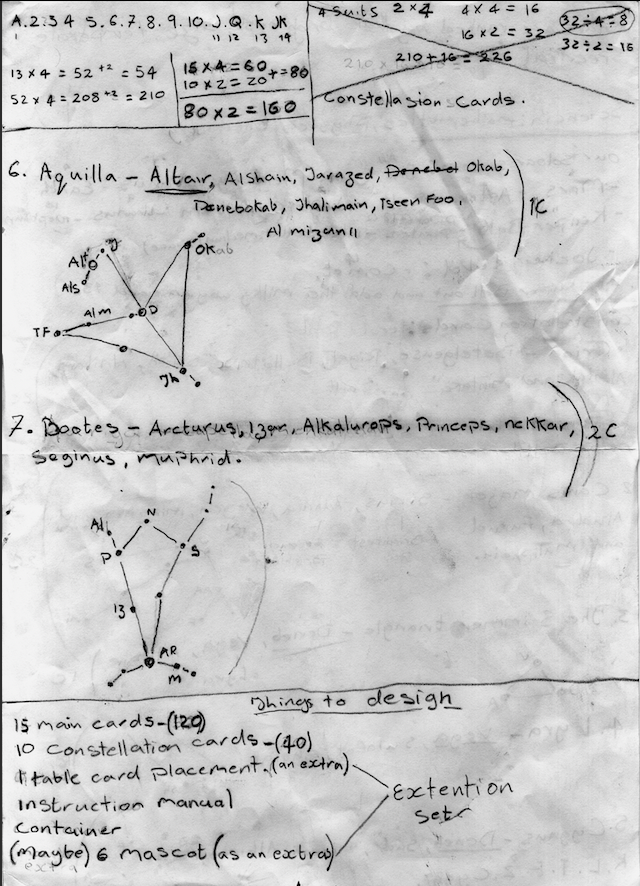 A.2.3 4 5.6.7.8.9.10.J.Q.K JK
1 11 12 13 14
13 x 4 = 52 +2 = 54
52 x 4 = 208 +2 = 210
15 x 4 = 60
10 x 2 = 20 += 80
80 x 2 = 160
4 suits 2 x 4 4 x 4 = 16
16 x 2 = 32
32 ÷ 4 = 8
32 ÷ 2 = 16
210 + 16 = 226
Constellasion Cards.
6. Aquilla - Altair, Alshain, Jarazed, Denebol Okab,
Denebokab, Jhalimain, Tseen Foo,
Al mizan 11
1C
J
Alt
Als
Okab
Alm
D
TF
Jh
7. Bootes - Arcturus, Izan, Alkalurops, Princeps, nekkar,
Seginus, Muphrid.
2C
Al
N
P
S
Iz
AR
M
Things to design
15 main cards - (120)
10 Constellation cards - (40)
1 table card placement. (an extra)
Instruction manual
Container
(Maybe) 6 mascot (as an extras)
Extention
Set